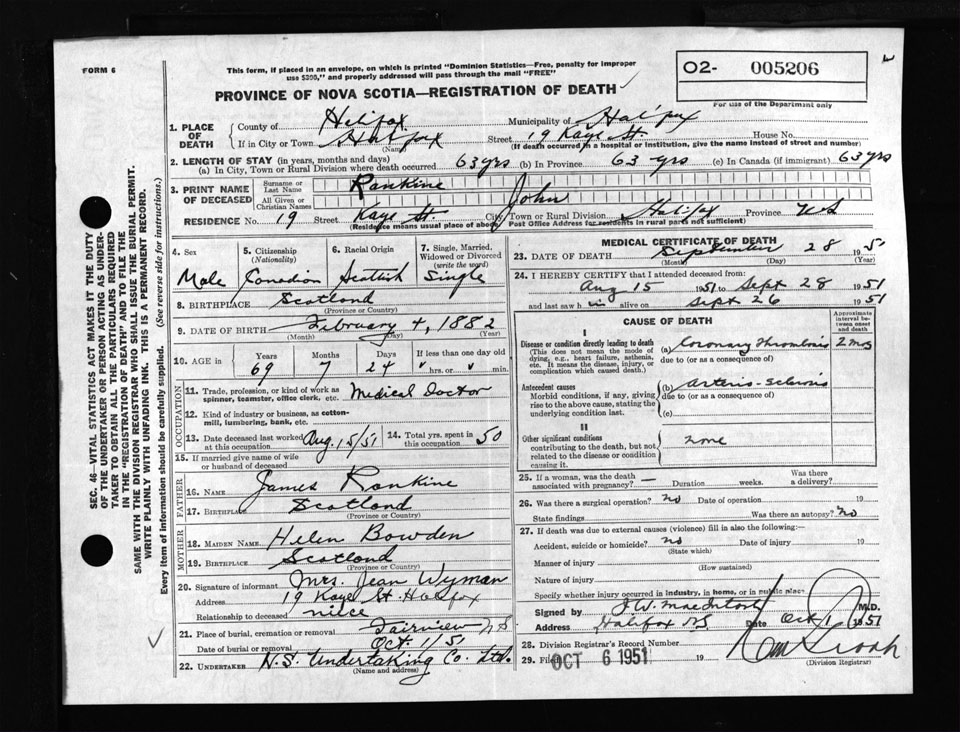 FORM 6
This form, if placed in an envelope, on which is printed "Dominion Statistics—Free, penalty for improper
use $300," and properly addressed will pass through the mail "FREE"
O2- 005206
PROVINCE OF NOVA SCOTIA—REGISTRATION OF DEATH
For use of the Department only
1. PLACE OF DEATH
County of Halifax Municipality of Halifax
If in City or Town Halifax Street 19 Kaye St. House No.
(Name) (If death occurred in a hospital or institution, give the name instead of street and number)
2. LENGTH OF STAY (in years, months and days)
(a) In City, Town or Rural Division where death occurred 63 yrs (b) In Province 63 yrs (c) In Canada (if immigrant) 63 yrs
3. PRINT NAME OF DECEASED
Surname or Last Name Rankine
All Given or Christian Names John
RESIDENCE No. 19 Street Kaye St. City, Town or Rural Division Halifax Province N S
(Residence means usual place of abode. Post Office Address for residents in rural parts not sufficient)
4. Sex
Male
5. Citizenship
(Nationality)
Canadian
6. Racial Origin
Scottish
7. Single, Married,
Widowed or Divorced
(write the word)
Single
8. BIRTHPLACE Scotland
(Province or Country)
9. DATE OF BIRTH February 4, 1882
(Month) (Day) (Year)
10. AGE in
Years Months Days If less than one day old
69 7 24 hrs. or min.
OCCUPATION
11. Trade, profession, or kind of work as
spinner, teamster, office clerk, etc. Medical Doctor
12. Kind of industry or business, as cotton-
mill, lumbering, bank, etc.
13. Date deceased last worked
at this occupation Aug. 15/51
14. Total yrs. spent in
this occupation 50
15. If married give name of wife
or husband of deceased
FATHER
16. NAME James Rankine
17. BIRTHPLACE Scotland
(Province or Country)
MOTHER
18. MAIDEN NAME Helen Bowden
19. BIRTHPLACE Scotland
(Province or Country)
20. Signature of informant Mrs. Jean Wyman
Address 19 Kaye St. Halifax
Relationship to deceased niece
21. Place of burial, cremation or removal Fairview N S
Date of burial or removal Oct. 1/51
22. UNDERTAKER N.S. Undertaking Co. Ltd.
(Name and address)
MEDICAL CERTIFICATE OF DEATH
23. DATE OF DEATH September 28 1951
(Month) (Day) (Year)
24. I HEREBY CERTIFY that I attended deceased from:
Aug 15 1951 to Sept 28 1951
and last saw h im alive on Sept 26 1951
CAUSE OF DEATH
Approximate
interval be-
tween onset
and death
I
Disease or condition directly leading to death (a) Coronary Thrombosis 2 mos
(This does not mean the mode of
dying, e.g., heart failure, asthenia,
etc. It means the disease, injury, or
complication which caused death.)
due to (or as a consequence of)
Antecedent causes (b) Arterio-sclerosis
Morbid conditions, if any, giving
rise to the above cause, stating the
underlying condition last.
due to (or as a consequence of)
(c)
II
Other significant conditions none
contributing to the death, but not
related to the disease or condition
causing it.
25. If a woman, was the death
associated with pregnancy? — Duration weeks. Was there
a delivery?
26. Was there a surgical operation? No Date of operation 19
State findings Was there an autopsy? No
27. If death was due to external causes (violence) fill in also the following:—
Accident, suicide or homicide? no Date of injury 19
(State which)
Manner of injury
(How sustained)
Nature of injury
Specify whether injury occurred in industry, in home, or in public place
Signed by J.W. MacIntosh M.D.
Address Halifax NS Date Oct 1 1951
28. Division Registrar's Record Number
29. Filed OCT 6 1951 19
(Division Registrar)
SEC. 46—VITAL STATISTICS ACT MAKES IT THE DUTY
OF THE UNDERTAKER OR PERSON ACTING AS UNDER-
TAKER TO OBTAIN ALL THE PARTICULARS REQUIRED
IN THE "REGISTRATION OF DEATH" AND TO FILE THE
SAME WITH THE DIVISION REGISTRAR WHO SHALL ISSUE THE BURIAL PERMIT.
WRITE PLAINLY WITH UNFADING INK. THIS IS A PERMANENT RECORD.
Every item of information should be carefully supplied. (See reverse side for instructions.)